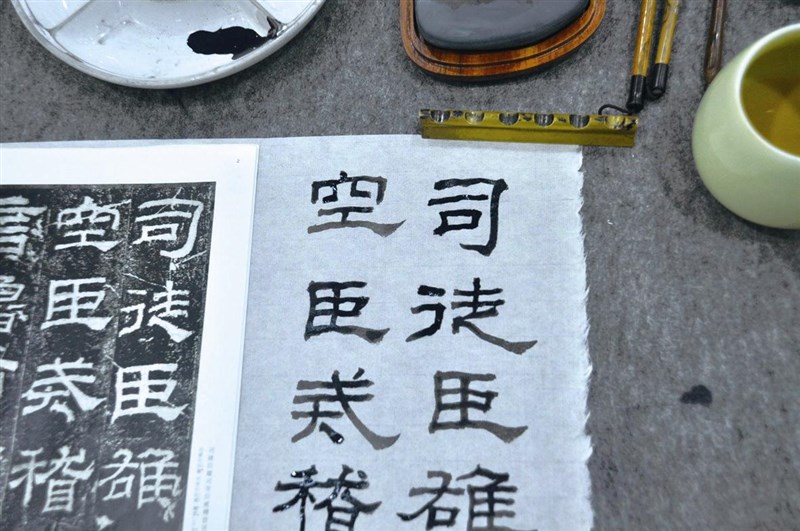 司徒臣雄
空臣戒稽
司徒臣雄
空臣戒稽
言魯前